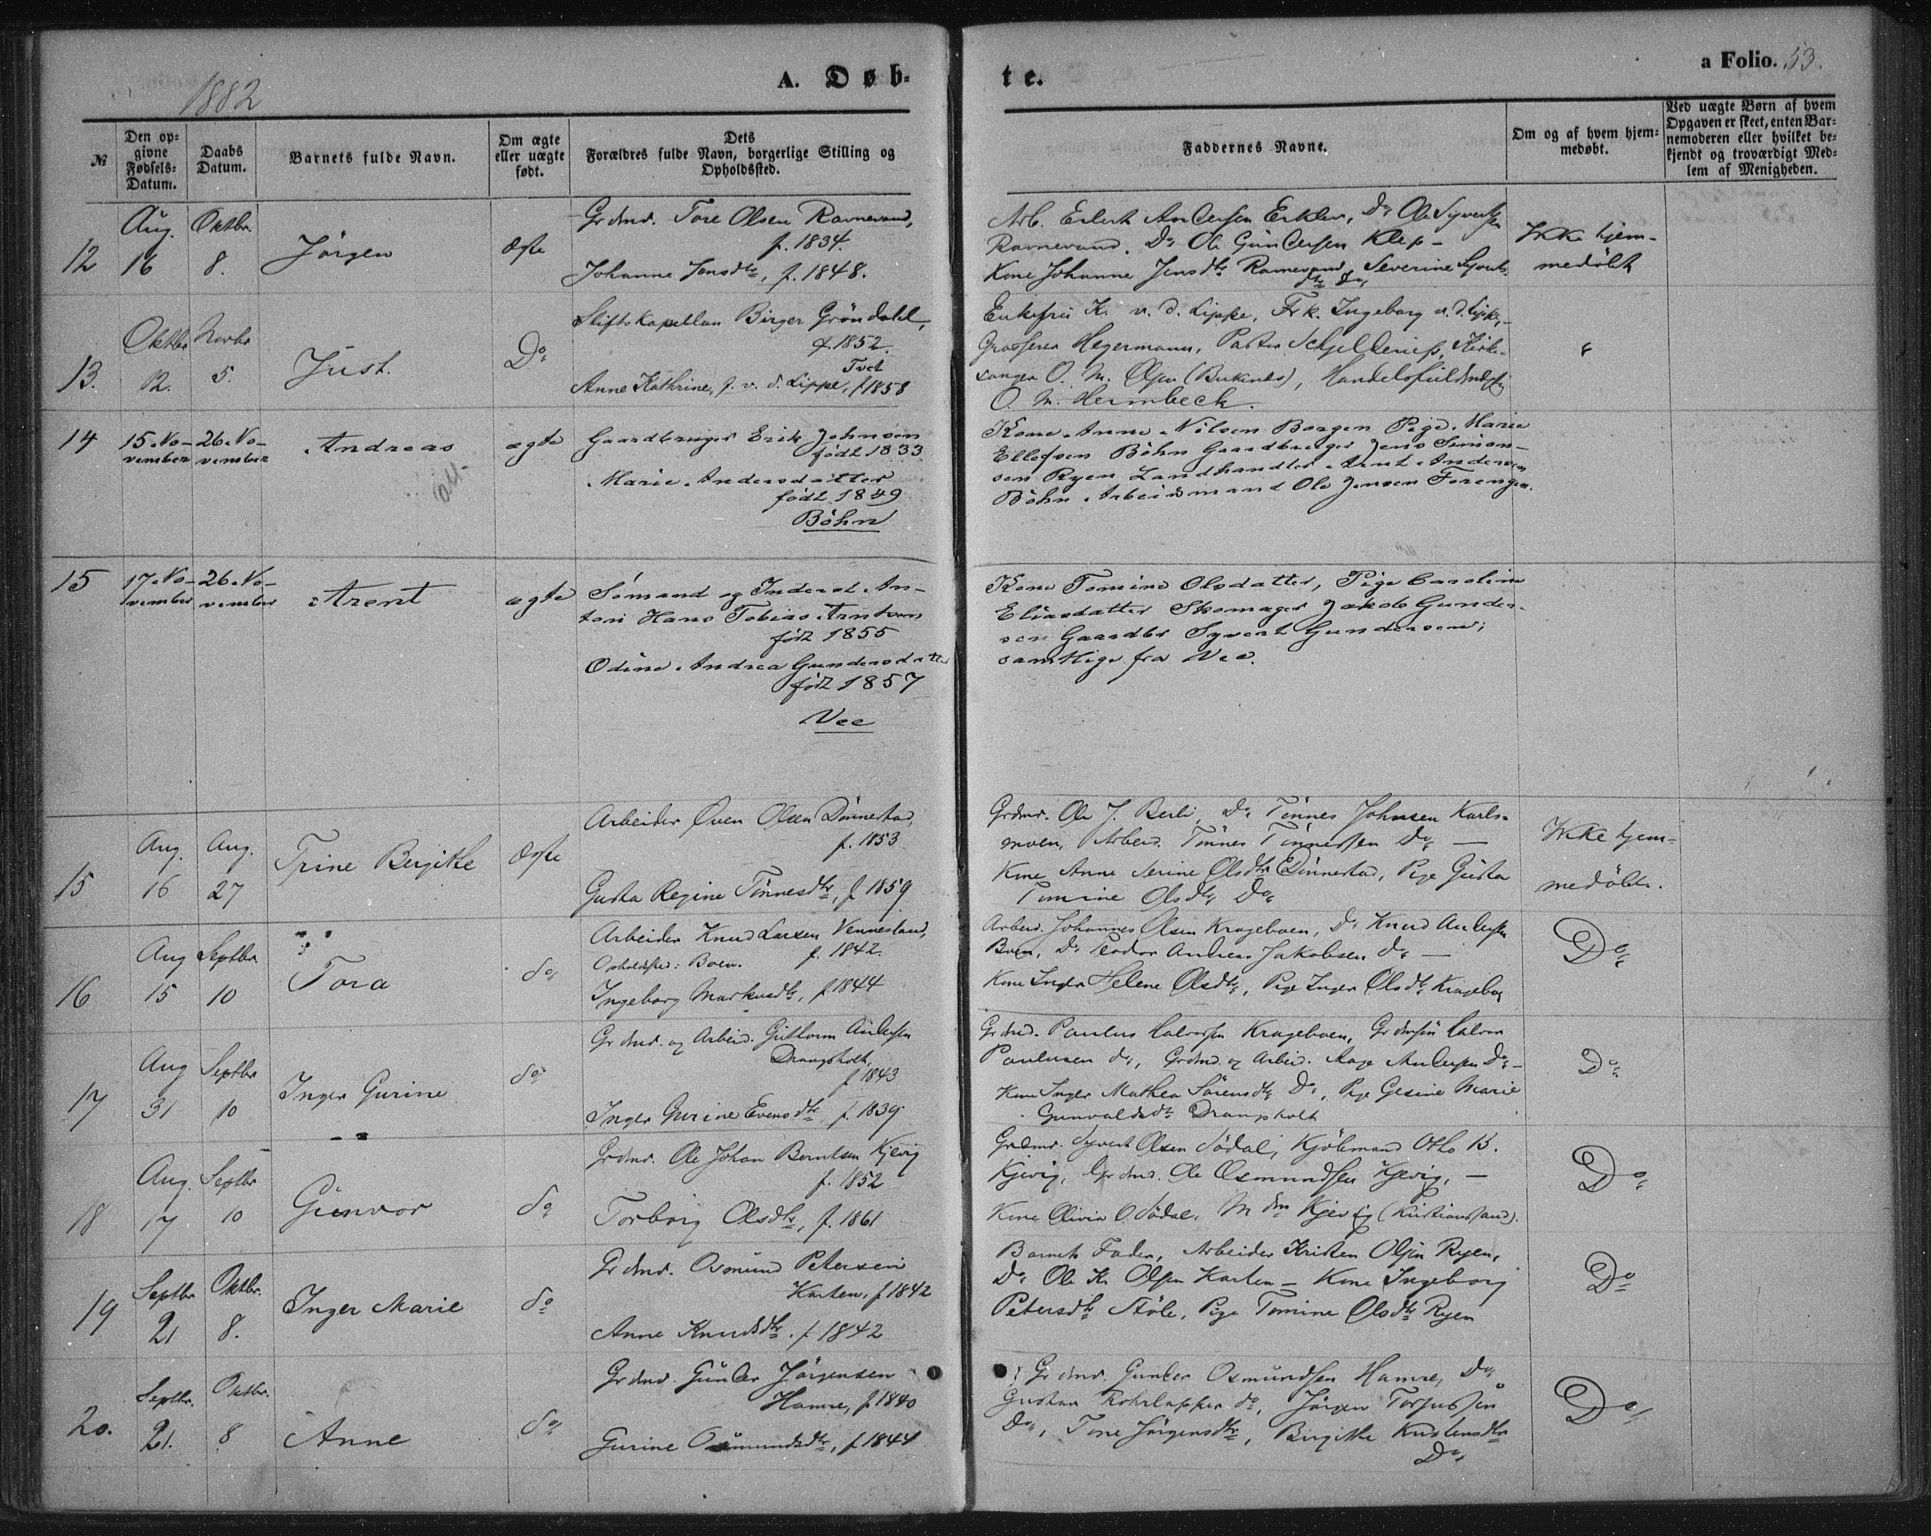 1882
A. Døb-
te.
a Folio. 53.
№
Den op-
givne
Fødsels-
Datum.
Daabs
Datum.
Barnets fulde Navn.
Om ægte
eller uægte
født.
Dets
Forældres fulde Navn, borgerlige Stilling og
Opholdssted.
Faddernes Navne.
Om og af hvem hjem-
medøbt.
Ved uægte Børn af hvem
Opgaven er skeet, enten Bar-
nemoderen eller hvilket be-
kjendt og troværdigt Med-
lem af Menigheden.
12
Aug.
16
Oktbr.
8.
Jörgen
Ægte
Grdmd. Tore Olsen Ravnevand,
f. 1834.
Johanne Jensdtr, f. 1848.
Arb. Ellert Andersen Erklev, Do Ole Syvertsen
Ravnevand. Do Ole Gundersen Klep –
Kone Johanne Jensdtr Ravnevand, Severine Syverts-
dtr Do
Ikke hjem-
medöbt
13.
Oktbr
12.
Novbr
5.
Just.
Do
Stiftskapellan Birger Gröndahl,
f. 1852.
Tvet
Anne Kathrine, f. v. d. Lippe, f 1858
Enkefru K. v. d. Lippe, Frk. Ingeborg v. d. Lippe,
Grosserer Hegermann, Pastor Schjelderup, Kirke-
sanger O. M. Olsen (Birkenes), Handelsfuldmægtig
O. M. Heimbeck.
14
15. No-
vember
26. No-
vember
Andreas
ægte
Gaardbruger Erik Johnsen
født 1833
Marie Andersdatter
født 1849
Böhn
Kone Anne Nilsen Borgen Pige Marie
Ellefsen Böhn Gaardbruger Jens Simon-
sen Ryen Landhandler Arnt Ander-
sen Böhn Arbeidsmand Ole Jensen Torengen.
15
17. No-
vember
26. No-
vember
Arent
ægte
Sömand og Inderst An-
ton Hans Tobias Arntsen
født 1855
Odine Andrea Gundersdatter
født 1857
Vee
Kone Tomine Olsdatter, Pige Caroline
Eliasdatter Skomager Jakob Gunder-
sen Gaardbr Syvert Gundersen;
samtlige fra Vee.
15
Aug.
16
Aug.
27
Trine Birgitte
Ægte
Arbeider Even Olsen Dönnestad,
f. 1853
Gusta Regine Tönnesdtr, f 1859.
Grdmd. Ole J. Berli, Do Tönnes Johnsen Karls-
moen, Arbeid. Tönnes Tönnessen Do –
Kone Anne Serine Olsdtr Dönnestad, Pige Gusta
Tomine Olsdtr Do
Ikke hjem-
medöbt.
16
Aug
15
Septbr.
10
Tora
do
Arbeider Knud Larsen Vennesland,
f. 1842.
Opholdsted: Boen.
Ingeborg Markusdtr, f 1844
Arbeid. Johannes Olsen Krageboen, Do Knud Andersen
Boen, Do Teodor Andreas Jakobsen do –
Kone Inger Helene Olsdtr, Pige Inger Olsdtr Kragebo
Do
17
Aug
31
Septbr
10
Inger Gurine
do
Grdmd. og Arbeid. Guttorm Andersen
Drangsholt,
f 1843
Inger Gurine Evensdtr f. 1839.
Grdmd. Paulus Halvorsen Krageboen, Grdmsön Halvor
Paulusen do, Grdmd. og Arbeid. Aage Andersen Do –
Kone Inger Mathea Sörensdtr Do, Pige Gesine Marie
Gunvaldsdtr Drangsholt
Do
18
Aug.
17
Septbr
10
Gunvor
do
Grdmd. Ole Johan Berntsen Kjevig
f. 1852
Torborg Olsdtr, f. 1861
Grdmd. Syvert Olsen Södal, Kjöbmand Otto B.
Kjevig, Grdmd. Ole Osmundsen Kjevig, –
Kone Olivia O. Södal, Mdm Kjevig (Kristianssand).
Do
19
Septbr
21
Oktbr.
8.
Inger Marie
do
Grdmd. Osmund Petersen
Karten, f 1842
Anne Knudsdtr. f 1842
Barnets Fader, Arbeider Kristen Olsen Ryen,
Do Ole Kr. Olsen Karten – Kone Ingeborg
Petersdtr Stöle, Pige Tomine Olsdtr Ryen
Do
20.
Septbr.
21.
Oktbr.
8
Anne
do
Grdmd. Gunder Jörgensen
Hamre, f 1840
Gurine Osmundsdtr, f 1844
Grdmd. Gunder Osmundsen Hamre, Do
Gustav do, Jörgen Torjussen
Do, Tone Jörgensdtr, Birgitte Kristensdtr
Do
Do